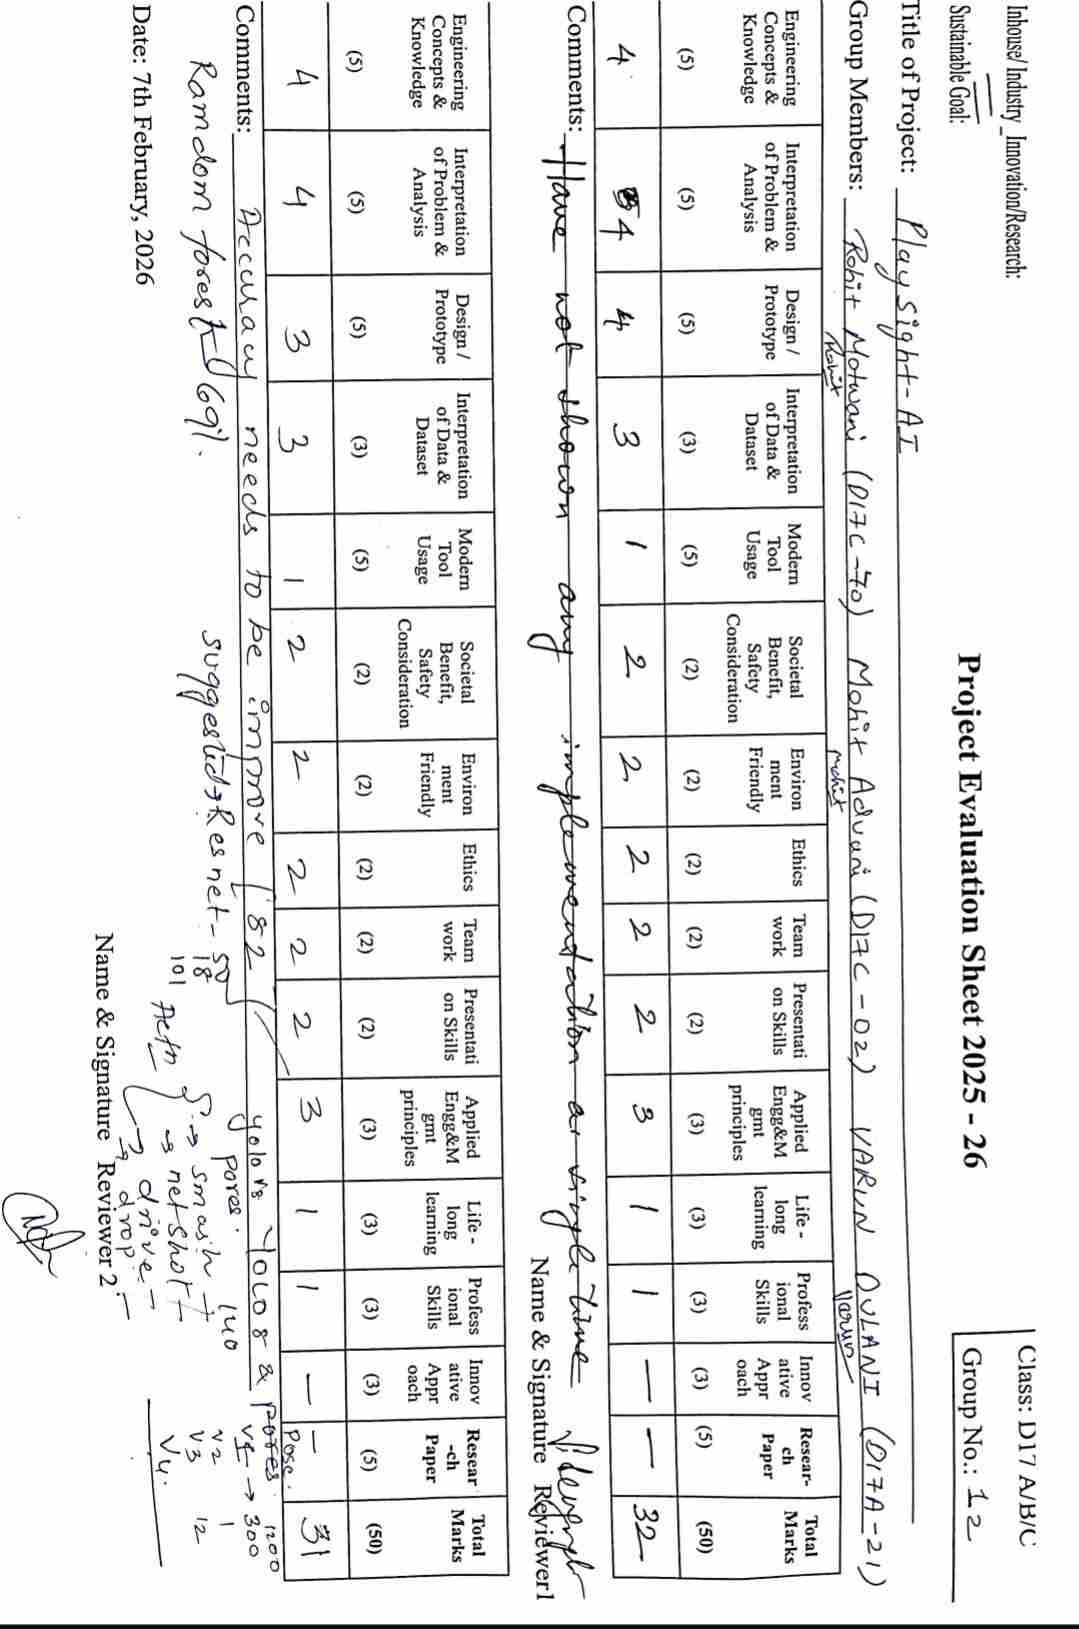 Inhouse/ Industry_Innovation/Research:
Sustainable Goal:
Project Evaluation Sheet 2025 - 26
Class: D17 A/B/C
Group No.: 12
Title of Project: Playsight-AI
Group Members: Rohit Motwani (D17C-70) Mohit Advani (D17C-02) VARUN DULANI (D17A-21)
Rohit Mohit Varun
Engineering Concepts & Knowledge Interpretation of Problem & Analysis Design / Prototype Interpretation of Data & Dataset Modern Tool Usage Societal Benefit, Safety Consideration Environ ment Friendly Ethics Team work Presentati on Skills Applied Engg&M gmt principles Life - long learning Profess ional Skills Innov ative Appr oach Resear- ch Paper Total Marks
(5) (5) (5) (3) (5) (2) (2) (2) (2) (2) (3) (3) (3) (3) (5) (50)
4 4 4 3 1 2 2 2 2 2 3 1 1 — — 32
Comments: Have not shown any implementation as single time
Name & Signature Reviewer1
Engineering Concepts & Knowledge Interpretation of Problem & Analysis Design / Prototype Interpretation of Data & Dataset Modern Tool Usage Societal Benefit, Safety Consideration Environ ment Friendly Ethics Team work Presentati on Skills Applied Engg&M gmt principles Life - long learning Profess ional Skills Innov ative Appr oach Resear -ch Paper Total Marks
(5) (5) (5) (3) (5) (2) (2) (2) (2) (2) (3) (3) (3) (3) (5) (50)
4 4 3 3 1 2 2 2 2 2 3 1 1 — — 31
Comments: Accuracy needs to be improve 82 yolo v8 yolo 8 & pores
pose.
Ramdom forest 69%.
suggested→Resnet-50
18
101
pores. 140
smash
→ netshot
→ drive
→ drop
v1 → 300
1200
v2 1
v3 12
v4.
Date: 7th February, 2026
Name & Signature Reviewer 2: